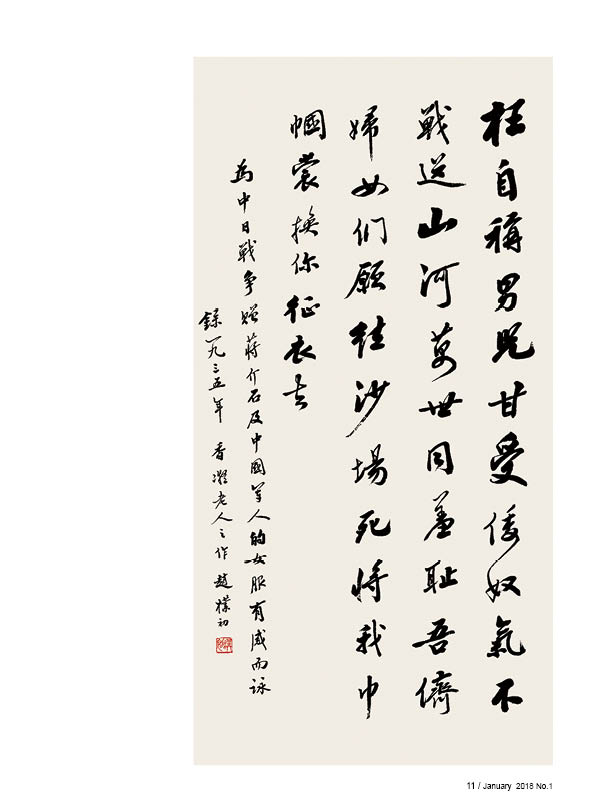 枉自稱男兒甘受倭奴氣不
戰送山河萬世同羞恥吾儕
婦女們願往沙場死將我巾
幗裳換你征衣去
為中日戰争贈蔣介石及中國軍人的女服有感而詠
錄一九三五年 香凝老人之作 趙樸初
11 / January 2018 No.1